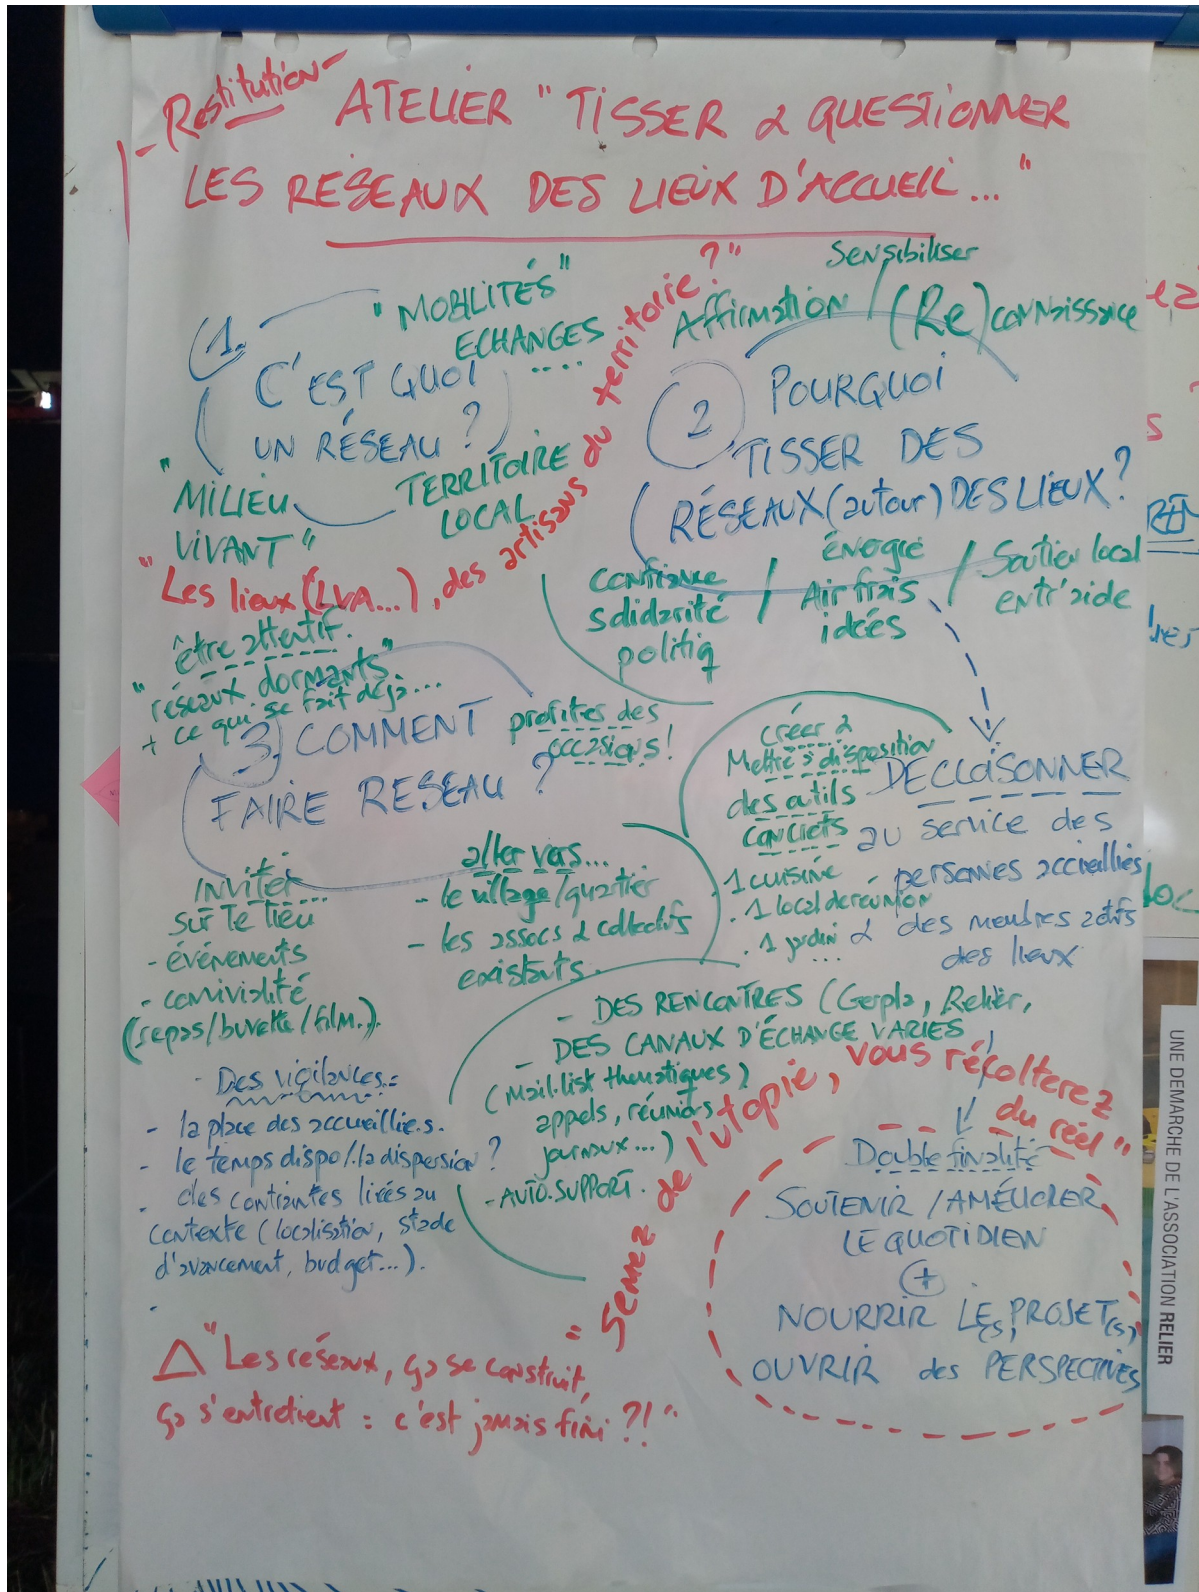 Restitution
ATELIER "TISSER & QUESTIONNER
LES RÉSEAUX DES LIEUX D'ACCUEIL..."
1.
"MOBILITÉS"
ECHANGES
....
C'EST QUOI
UN RÉSEAU ?
"MILIEU
VIVANT"
TERRITOIRE
LOCAL
"Les lieux (LVA...), des artisans du territoire ?"
Sensibiliser
Affirmation / (Re)connaissance
2
POURQUOI
TISSER DES
RÉSEAUX (autour) DES LIEUX ?
confiance
solidarité
politiq
/
énergie
Air frais
idées
/
Soutien local
entr'aide
être attentif.
"réseaux dormants"
+ ce qui se fait déjà...
3) COMMENT
FAIRE RESEAU ?
profiter des
occasions !
Inviter
sur le lieu
- événements
- convivialité
(repas/buvette/film..).
aller vers...
- le village/quartier
- les assocs & collectifs
existants.
créer &
Mettre à disposition
des outils
concrets
1 cuisine
. 1 local de réunion
. 1 jardin
...
DECLOISONNER
au service des
personnes accueillies
& des membres actifs
des lieux
- DES RENCONTRES (Gerpla, Relier,
- DES CANAUX D'ÉCHANGE VARIES
(Mail.list thématiques)
appels, réunions
journaux...)
- AUTO.SUPPORT.
- Des vigilances :
- la place des accueillie.s.
- le temps dispo/la dispersion ?
- des contraintes liées au
contexte (localisation, stade
d'avancement, budget...).
"Semez de l'utopie, vous récolterez
du réel"
Double finalité
SOUTENIR / AMÉLIORER
LE QUOTIDIEN
+
NOURRIR LE(s) PROJET(s),
OUVRIR des PERSPECTIVES
"Les réseaux, ça se construit,
ça s'entretient : c'est jamais fini ?!"
UNE DEMARCHE DE L'ASSOCIATION RELIER